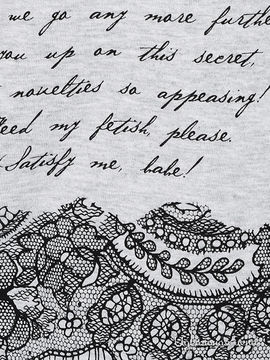 we go any more furthe
you up on this secret,
novelties so appeasing!
feed my fetish, please.
Satisfy me, babe!